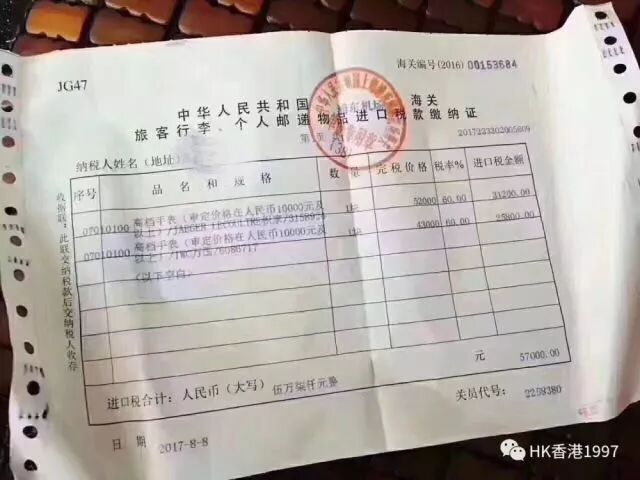 JG47
海关编号(2016) 00153684
中华人民共和国 浦东机场 海关
旅客行李、个人邮递物品进口税款缴纳证
2017223302005809
纳税人姓名(地址)
序号 品名和规格 数量 完税价格 税率% 进口税金额
07010100 高档手表(审定价格在人民币10000元及以上)/JAEGER LECOULTRE 52000 60.00 31200.00
07010100 高档手表(审定价格在人民币10000元及以上)/IWC万国 43000 60.00 25800.00
(以下空白)
元 57000.00
进口税合计:人民币(大写) 伍万柒仟元整
关员代号: 2258380
日期 2017-8-8
收据联:此联交纳税款后交纳税人收存
HK香港1997